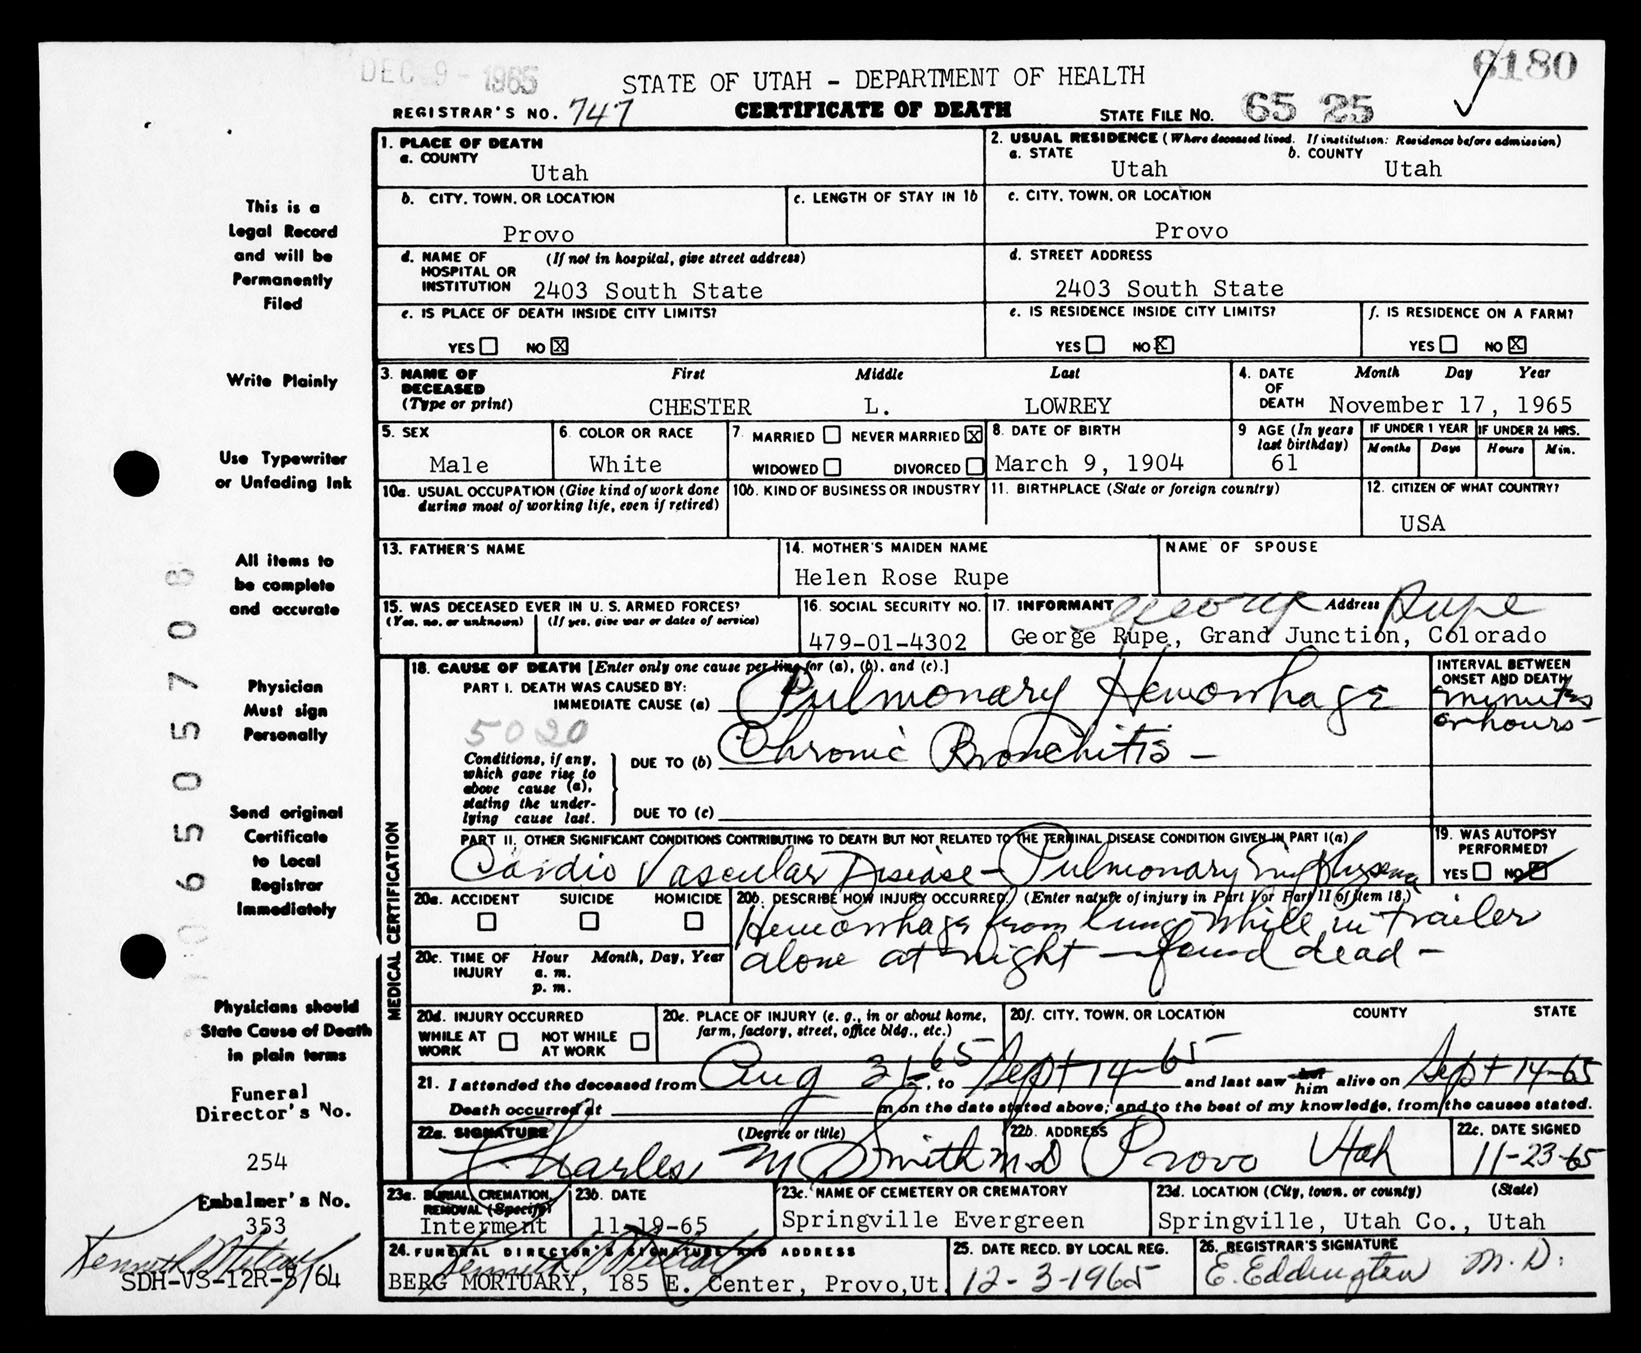 DEC 9 - 1965
6180
STATE OF UTAH - DEPARTMENT OF HEALTH
REGISTRAR'S NO. 747 CERTIFICATE OF DEATH STATE FILE NO. 65 25
1. PLACE OF DEATH
a. COUNTY
Utah
2. USUAL RESIDENCE (Where deceased lived. If institution: Residence before admission)
a. STATE b. COUNTY
Utah Utah
b. CITY, TOWN, OR LOCATION
Provo
c. LENGTH OF STAY IN 1b
c. CITY, TOWN, OR LOCATION
Provo
d. NAME OF HOSPITAL OR INSTITUTION (If not in hospital, give street address)
2403 South State
d. STREET ADDRESS
2403 South State
e. IS PLACE OF DEATH INSIDE CITY LIMITS?
YES NO X
e. IS RESIDENCE INSIDE CITY LIMITS?
YES NO X
f. IS RESIDENCE ON A FARM?
YES NO X
3. NAME OF DECEASED (Type or print)
First Middle Last
CHESTER L. LOWREY
4. DATE OF DEATH Month Day Year
November 17, 1965
5. SEX
Male
6. COLOR OR RACE
White
7. MARRIED NEVER MARRIED X
WIDOWED DIVORCED
8. DATE OF BIRTH
March 9, 1904
9 AGE (In years last birthday)
61
IF UNDER 1 YEAR IF UNDER 24 HRS.
Months Days Hours Min.
10a. USUAL OCCUPATION (Give kind of work done during most of working life, even if retired)
10b. KIND OF BUSINESS OR INDUSTRY
11. BIRTHPLACE (State or foreign country)
12. CITIZEN OF WHAT COUNTRY?
USA
13. FATHER'S NAME
14. MOTHER'S MAIDEN NAME
Helen Rose Rupe
NAME OF SPOUSE
15. WAS DECEASED EVER IN U. S. ARMED FORCES?
(Yes, no, or unknown) (If yes, give war or dates of service)
16. SOCIAL SECURITY NO.
479-01-4302
17. INFORMANT George Address Rupe
George Rupe, Grand Junction, Colorado
18. CAUSE OF DEATH [Enter only one cause per line for (a), (b), and (c).]
PART I. DEATH WAS CAUSED BY:
IMMEDIATE CAUSE (a) Pulmonary Hemorrhage
INTERVAL BETWEEN ONSET AND DEATH
minutes
or hours -
5020
Conditions, if any, which gave rise to above cause (a), stating the underlying cause last.
DUE TO (b) Chronic Bronchitis -
DUE TO (c)
PART II. OTHER SIGNIFICANT CONDITIONS CONTRIBUTING TO DEATH BUT NOT RELATED TO THE TERMINAL DISEASE CONDITION GIVEN IN PART I(a)
Cardio Vascular Disease - Pulmonary Emphysema
19. WAS AUTOPSY PERFORMED?
YES NO X
20a. ACCIDENT SUICIDE HOMICIDE
20b. DESCRIBE HOW INJURY OCCURRED. (Enter nature of injury in Part I or Part II of item 18.)
Hemorrhage from lung while in trailer
alone at night - found dead -
20c. TIME OF INJURY Hour a. m. p. m. Month, Day, Year
20d. INJURY OCCURRED
WHILE AT WORK NOT WHILE AT WORK
20e. PLACE OF INJURY (e. g., in or about home, farm, factory, street, office bldg., etc.)
20f. CITY, TOWN, OR LOCATION COUNTY STATE
21. I attended the deceased from Aug 21-65, to Sept 14-65 and last saw him alive on Sept 14-65
Death occurred at m on the date stated above; and to the best of my knowledge, from the causes stated.
22a. SIGNATURE (Degree or title)
Charles M Smith M.D
22b. ADDRESS
Provo Utah
22c. DATE SIGNED
11-23-65
23a. BURIAL, CREMATION, REMOVAL (Specify)
Interment
23b. DATE
11-19-65
23c. NAME OF CEMETERY OR CREMATORY
Springville Evergreen
23d. LOCATION (City, town, or county) (State)
Springville, Utah Co., Utah
24. FUNERAL DIRECTOR'S SIGNATURE AND ADDRESS
BERG MORTUARY, 185 E. Center, Provo, Ut.
25. DATE RECD. BY LOCAL REG.
12-3-1965
26. REGISTRAR'S SIGNATURE
E. Eddington M.D.
MEDICAL CERTIFICATION
This is a
Legal Record
and will be
Permanently
Filed
Write Plainly
Use Typewriter
or Unfading Ink
All items to
be complete
and accurate
Physician
Must sign
Personally
Send original
Certificate
to Local
Registrar
Immediately
Physicians should
State Cause of Death
in plain terms
Funeral
Director's No.
254
Embalmer's No.
353
SDH-VS-12R-5/64